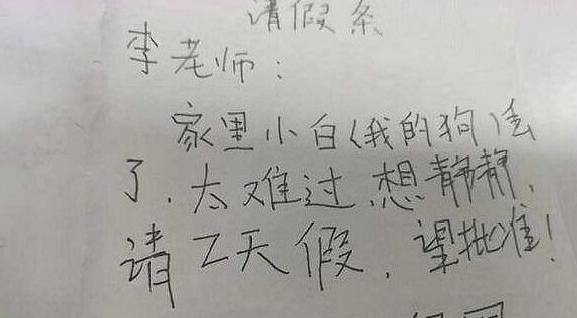 请假条
李老师：
家里小白(我的狗)丢
了,太难过,想静静,
请2天假,望批准!